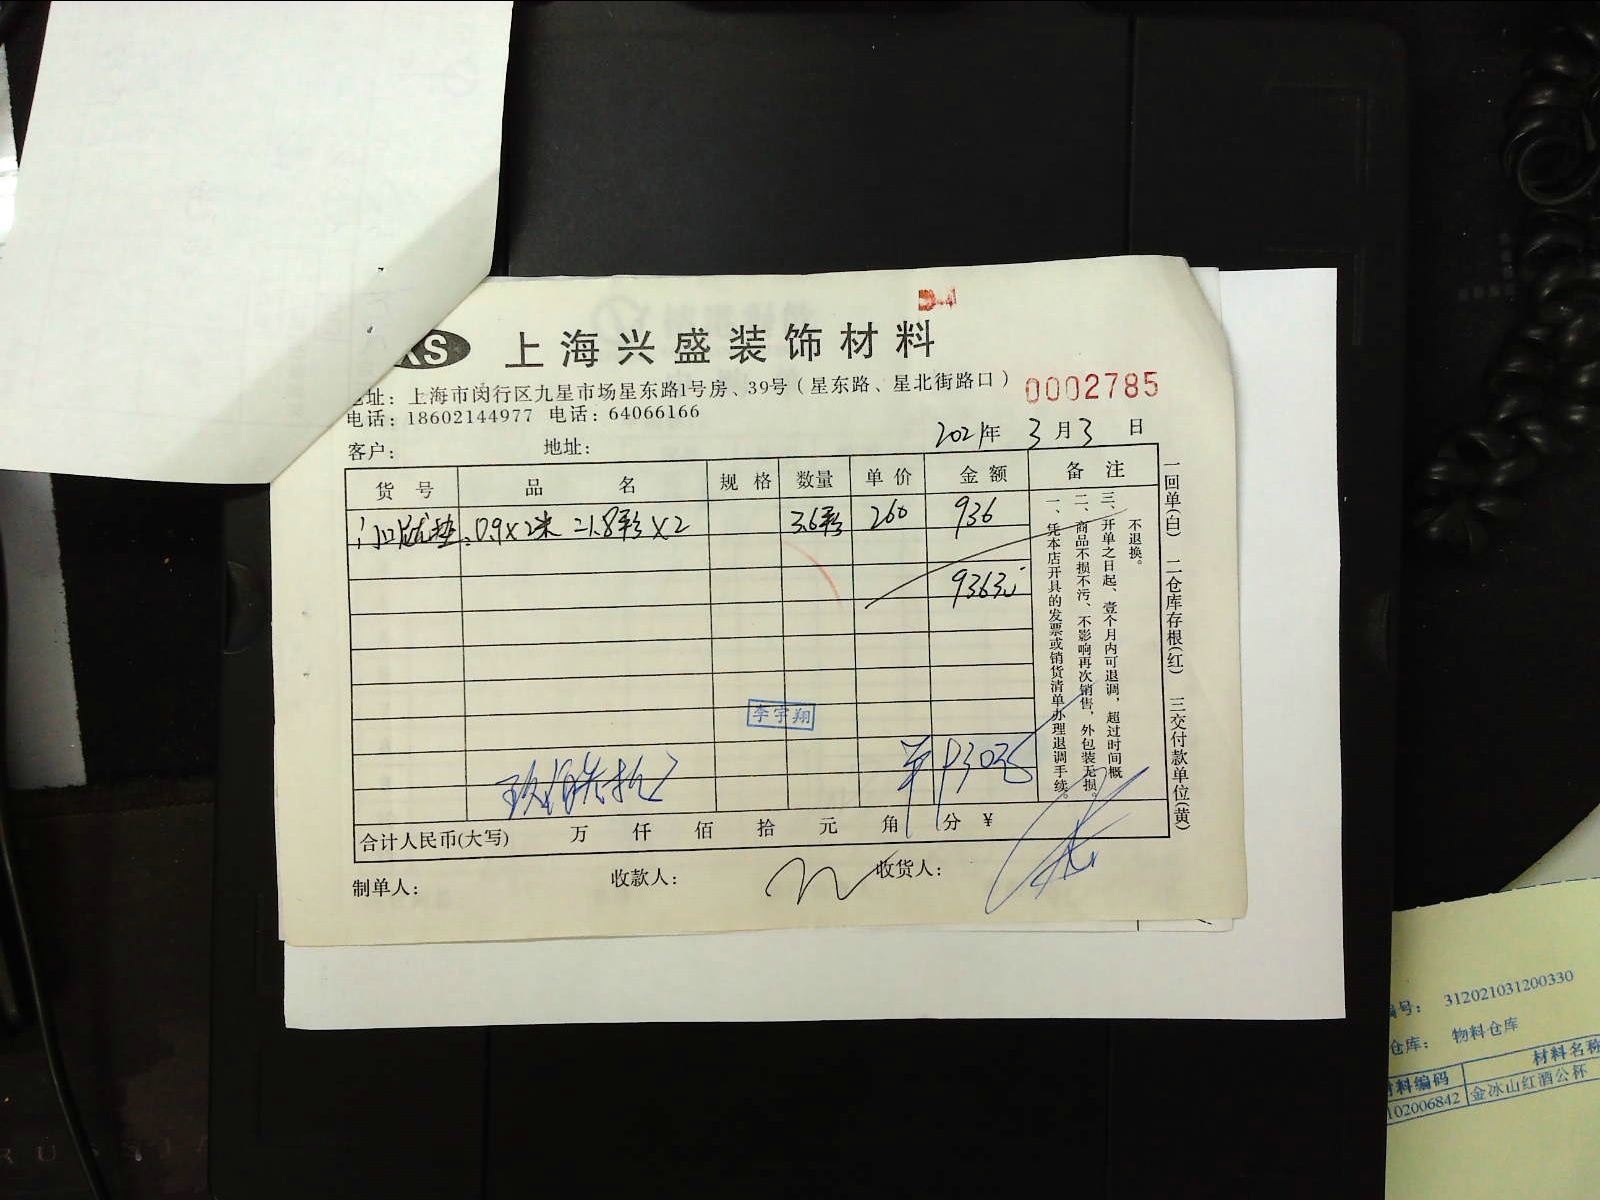 XS 上海兴盛装饰材料
地址：上海市闵行区九星市场星东路1号房、39号（星东路、星北街路口） 0002785
电话：18602144977 电话：64066166
客户： 地址： 2021年 3月3 日
货号 品名 规格 数量 单价 金额 备注
门口 垫 0.9×2米 =1.8平方×2 3.6平方 260 936
936元
一、凭本店开具的发票或销货清单办理退调手续。
二、商品不损不污、不影响再次销售，外包装无损。
三、开单之日起、壹个月内可退调，超过时间概
不退换。
一回单(白) 二仓库存根(红) 三交付款单位(黄)
李宇翔
合计人民币(大写) 万 仟 佰 拾 元 角 分 ¥
制单人： 收款人： 收货人：
编号： 312021031200330
仓库： 物料仓库
材料编码 材料名称
102006842 金冰山红酒公杯